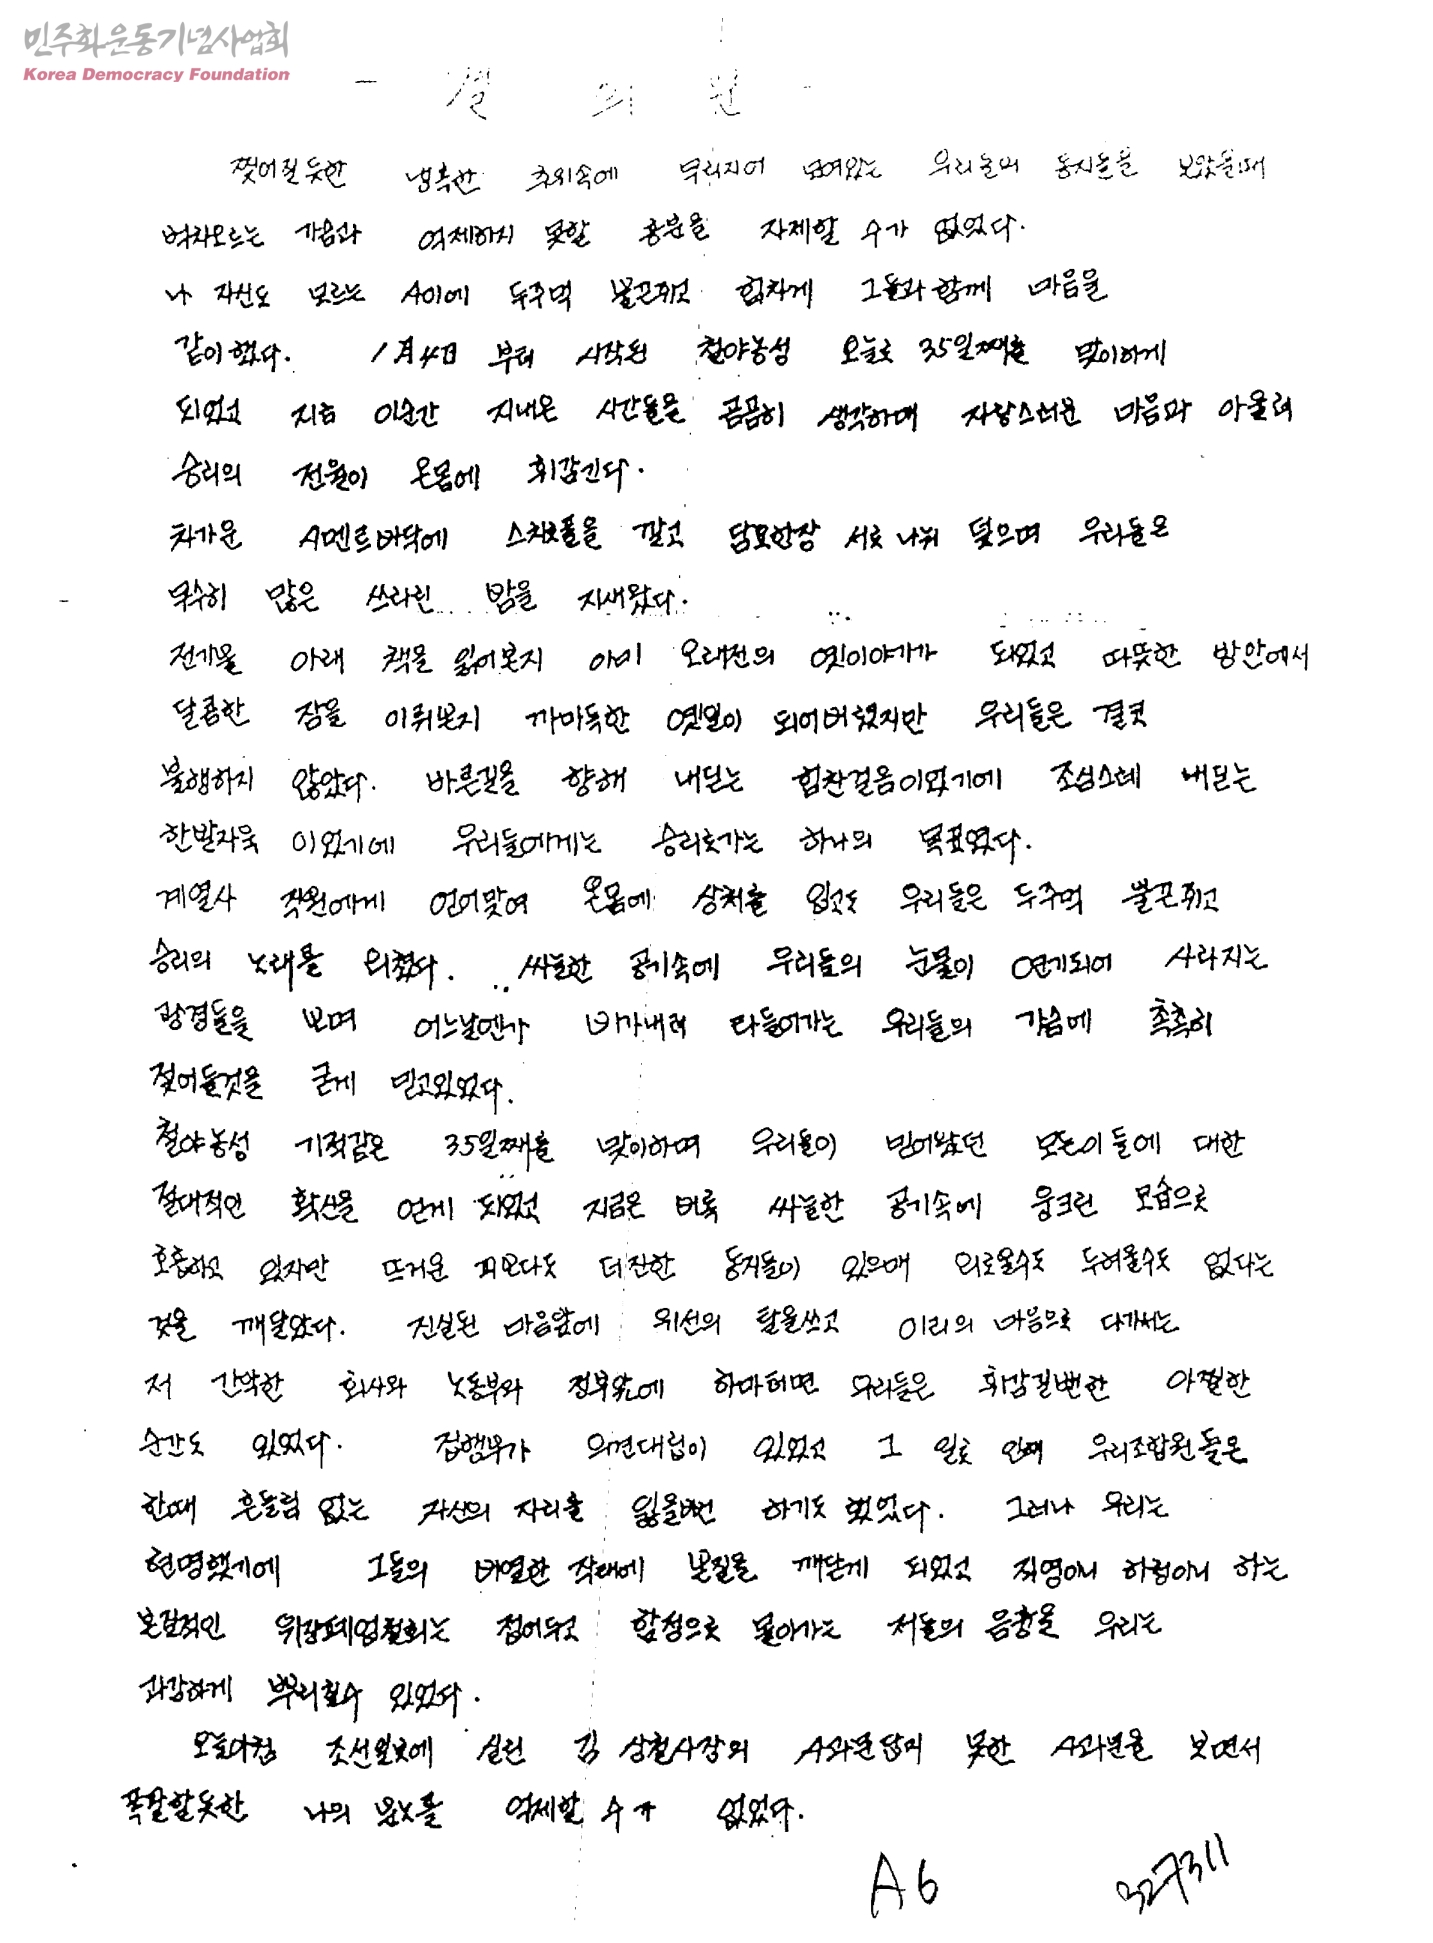 민주화운동기념사업회
Korea Democracy Foundation
- 결 의 문 -
찢어질듯한 냉혹한 추위속에 무리지어 모여있는 우리들의 동지들을 보았을때
벅차오르는 가슴과 억제하지 못할 흥분을 자제할 수가 없었다.
나 자신도 모르는 사이에 두주먹 불끈쥐고 힘차게 그들과 함께 마음을
같이했다. 1月4日 부터 시작된 철야농성 오늘로 35일째를 맞이하게
되었고 지금 이순간 지내온 시간들을 곰곰히 생각하며 자랑스러운 마음과 아울러
승리의 전율이 온몸에 휘감긴다.
차가운 시멘트바닥에 스치로폴을 깔고 담요한장 서로 나눠 덮으며 우리들은
무수히 많은 쓰라린 밤을 지새왔다.
전기불 아래 책을 읽어본지 아미 오래전의 옛이야기가 되었고 따뜻한 방안에서
달콤한 잠을 이뤄본지 까마득한 옛일이 되어버렸지만 우리들은 결코
불행하지 않았다. 바른길을 향해 내딛는 힘찬걸음이였기에 조심스레 내딛는
한발자욱 이였기에 우리들에게는 승리로가는 하나의 목표였다.
계열사 직원에게 얻어맞여 온몸에 상처를 입고도 우리들은 두주먹 불끈쥐고
승리의 노래를 외쳤다. 싸늘한 공기속에 우리들의 눈물이 연기되어 사라지는
광경들을 보며 어느날엔가 비가내려 타들어가는 우리들의 가슴에 촉촉히
젖어들것을 굳게 믿고있었다.
철야농성 기적같은 35일째를 맞이하며 우리들이 믿어왔던 모든이들에 대한
절대적인 확신을 얻게 되었고 지금은 비록 싸늘한 공기속에 웅크린 모습으로
호흡하고 있지만 뜨거운 피보다도 더진한 동지들이 있으매 외로울수도 두려울수도 없다는
것을 깨달았다. 진실된 마음앞에 위선의 탈을쓰고 이리의 마음으로 다가서는
저 간악한 회사와 노동부와 정부앞에 하마터면 우리들은 휘감길뻔한 아찔한
순간도 있었다. 집행부가 의견대립이 있었고 그 일로 인해 우리조합원들은
한때 흔들림 없는 자신의 자리를 잃을뻔 하기도 했었다. 그러나 우리는
현명했기에 그들의 비열한 작태에 본질을 깨닫게 되었고 직영이니 하청이니 하는
본질적인 위장폐업철회는 접어두고 함정으로 몰아가는 저들의 음흉을 우리는
과감하게 뿌리칠수 있었다.
오늘아침 조선일보에 실린 김 상철사장의 사과문답지 못한 사과문을 보면서
폭팔할듯한 나의 분노를 억제할 수가 없었다.
A6
327311